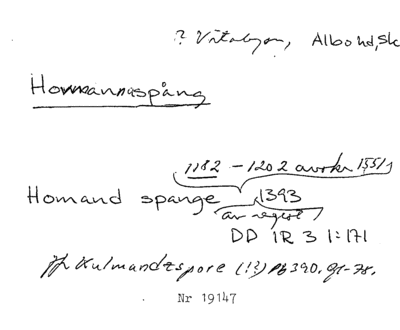 ? Vitabyn, Albo hd, Sk
Hommannaspång
1182 - 1202 avskr 1551
Homand spange 1393
av regest
DD 1R 3 1:171
jfr Kulmandzspore (!?) Pb 390. 91-78.
Nr 19147